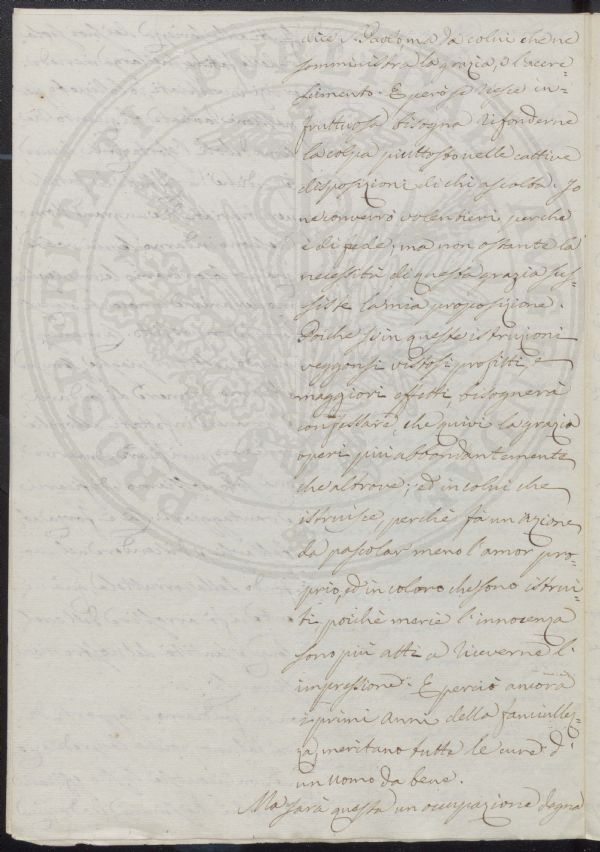 dice S. Paolo ma da colui che ne
somministra la grazia, e l'accre-
scimento. E però se riesce in-
fruttuosa bisogna rifonderne
la colpa piuttosto nelle cattive
disposizioni di chi ascolta. Io
ne converrò volentieri perchè
è di fede; ma non ostante la
necessità di questa grazia sus-
siste la mia proposizione.
Poichè si in queste istruzioni
veggonsi vistosi profitti, e
maggiori effetti, bisognerà
confessare, che quivi la grazia
operi più abbondantemente
che altrove; ed in colui che
istruisce perchè fà un azione
da pascolar meno l'amor pro-
prio, ed in coloro che sono istrui-
ti poichè mercè l'innocenza
sono più atti a riceverne l'
impressione. E perciò ancora
i primi anni della fanciullez-
za, meritano tutte le cure d'
un uomo da bene.
Ma sarà questa un occupazione degna
PROSPERITAT